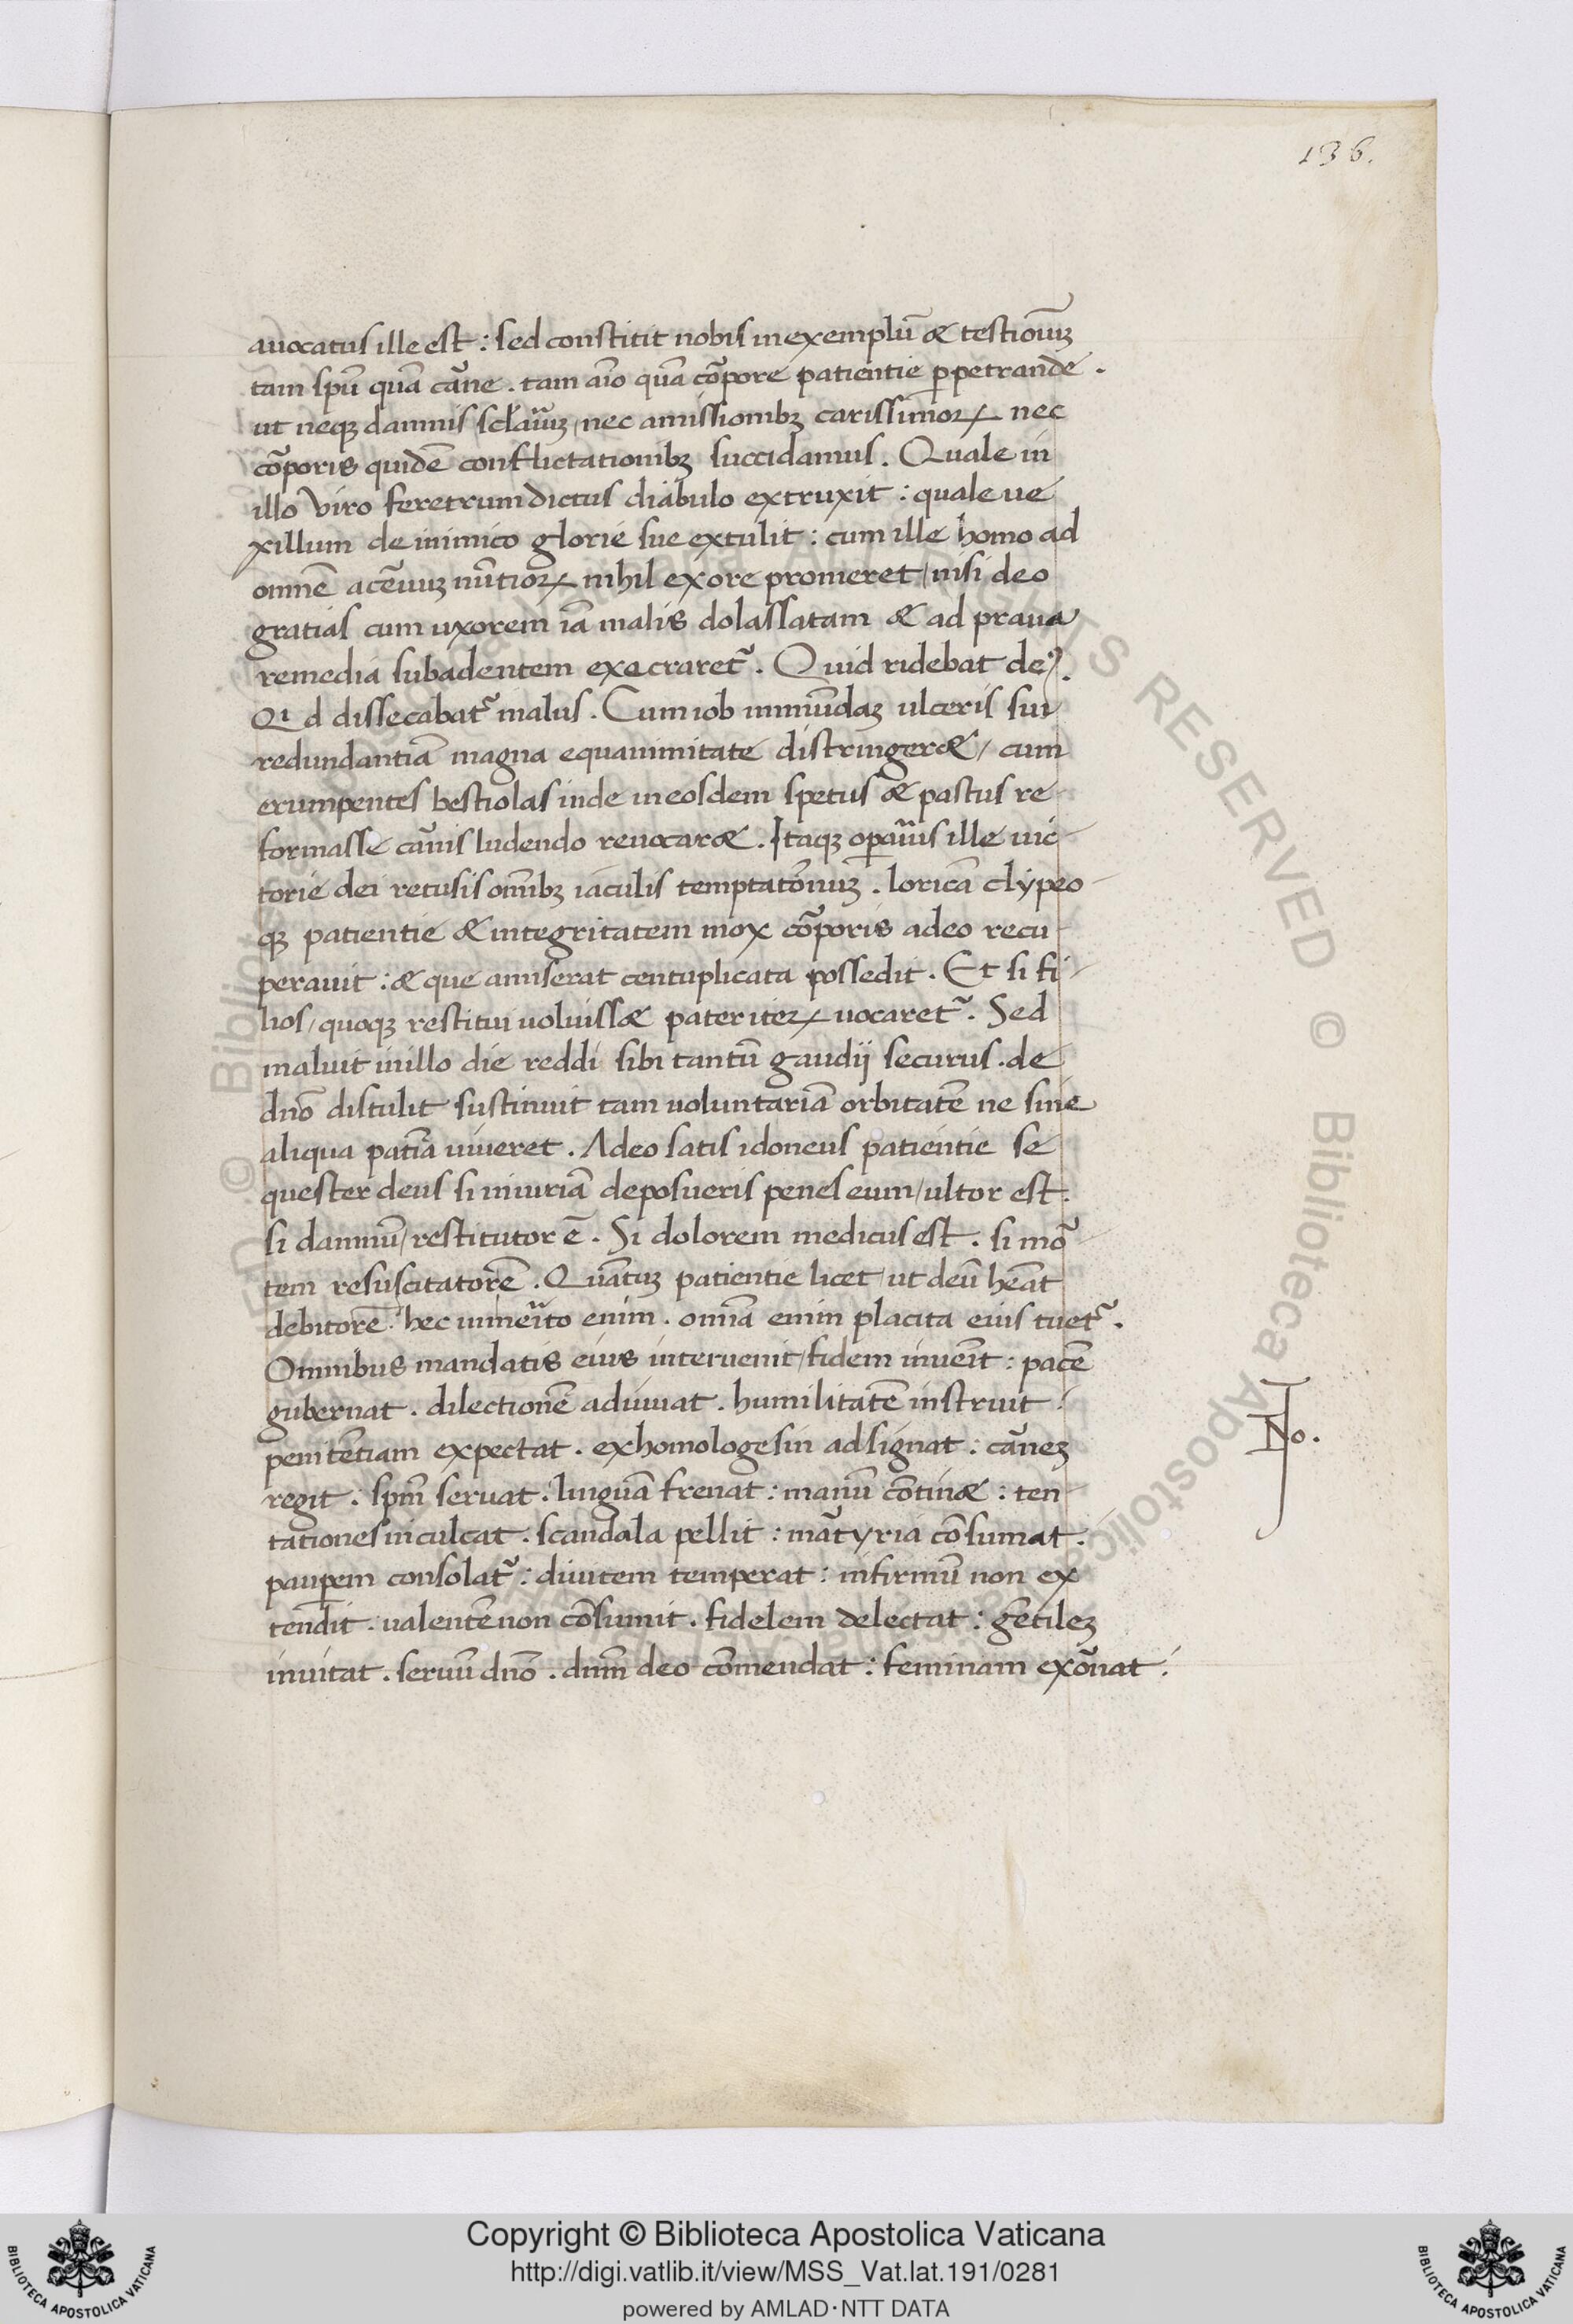 136.
auocatus ille est : sed constitit nobis in exemplū & testioniūꝫ
tam spū quā cā̃ne . tam aīo quā cõpore patientie ꝑpetrande .
ut neqꝫ damnis sclãriūꝫ / nec amissionibꝫ carissimoꝝ nec
cõporis quidē conflictationibꝫ succidamus . Quale in
illo viro feretrum dictus diabulo extruxit : quale ue
xillum de inimico glorie sue extulit : cum ille homo ad
omnē acēuuꝫ nūtioꝝ nihil ex ore promeret / nisi deo
gratias cum uxorem iā malis dolassatam & ad praua
remedia subadentem execraret᷑ . Quid ridebat deꝰ .
Qi d dissecabat᷑ malus . Cum iob inmūdaꝫ ulceris sui
redundantiā magna equanimitate distringer& / cum
erumpentes bestiolas inde in eosdem spetus & pastus re
formasse cãnis ludendo reuocar& . Itaqꝫ oꝑarius ille uic
torie dei retusis omībꝫ iaculis temptatōnuꝫ . loricā clypeo
qꝫ patientie & integritatem mox cõporis adeo recu
perauit : & que amiserat centuplicata possedit . Et si fi
lios / quoqꝫ restitui uoluiss& pater iteꝝ uocaret᷑ . Sed
maluit in illo die reddi sibi tantū gaudij securus . de
dnō distulit sustinuit tam uoluntariā orbitatē ne sine
aliqua patīa uiueret . Adeo satis idoneus patientie se
quester deus si iniuriā deposueris penes eum / ultor est .
si damnū / restitutor ē . Si dolorem medicus est . si mõ
tem resuscitatorē . Quātuꝫ patientie licet / ut deū hēat
debitorē . hec inmerito enim . omīa enim placita eius tuet᷑ .
Omnibus mandatis eius interuenit / fidem inuēit : pacē
gubernat . dilectionē adiuuat . humilitatē instruit .
penitētiam expectat . exhomologesin adsignat : cãneꝫ
regit : spm̄ seruat . linguā frenat : manū cōtin& : ten
tationes inculcat . scandala pellit : mãtyria cōsumat .
pauꝑem consolat᷑ : diuitem temperat : infirmū non ex
tendit . ualentē non cōsumit . fidelem delectat : gētileꝫ
inuitat . seruū dnō . dnm̄ deo cōmendat : feminam exõnat :
No.
© Biblioteca Apostolica
RIGHTS RESERVED
Copyright © Biblioteca Apostolica Vaticana
http://digi.vatlib.it/view/MSS_Vat.lat.191/0281
powered by AMLAD·NTT DATA
BIBLIOTECA APOSTOLICA VATICANA
BIBLIOTECA APOSTOLICA VATICANA